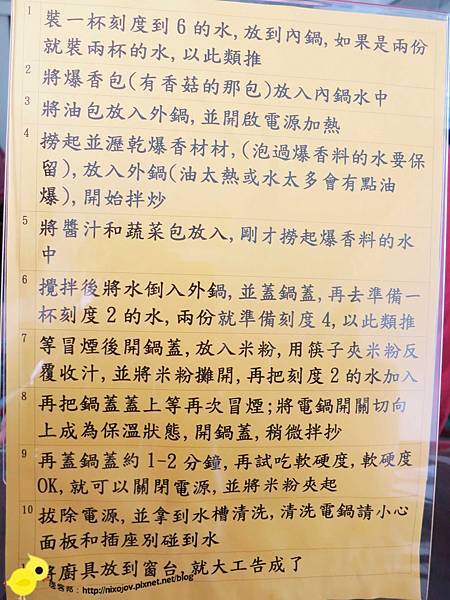 1 裝一杯刻度到6的水,放到內鍋,如果是兩份
就裝兩杯的水,以此類推
2 將爆香包(有香菇的那包)放入內鍋水中
3 將油包放入外鍋,並開啟電源加熱
4 撈起並瀝乾爆香材材,(泡過爆香料的水要保
留),放入外鍋(油太熱或水太多會有點油
爆),開始拌炒
5 將醬汁和蔬菜包放入,剛才撈起爆香料的水
中
6 攪拌後將水倒入外鍋,並蓋鍋蓋,再去準備一
杯刻度2的水,兩份就準備刻度4,以此類推
7 等冒煙後開鍋蓋,放入米粉,用筷子夾米粉反
覆收汁,並將米粉攤開,再把刻度2的水加入
8 再把鍋蓋蓋上等再次冒煙;將電鍋開關切向
上成為保溫狀態,開鍋蓋,稍微拌抄
9 再蓋鍋蓋約1-2分鐘,再試吃軟硬度,軟硬度
OK,就可以關閉電源,並將米粉夾起
10 拔除電源,並拿到水槽清洗,清洗電鍋請小心
面板和插座別碰到水
將廚具放到窗台,就大工告成了
痞客邦:http://nixojov.pixnet.net/blog